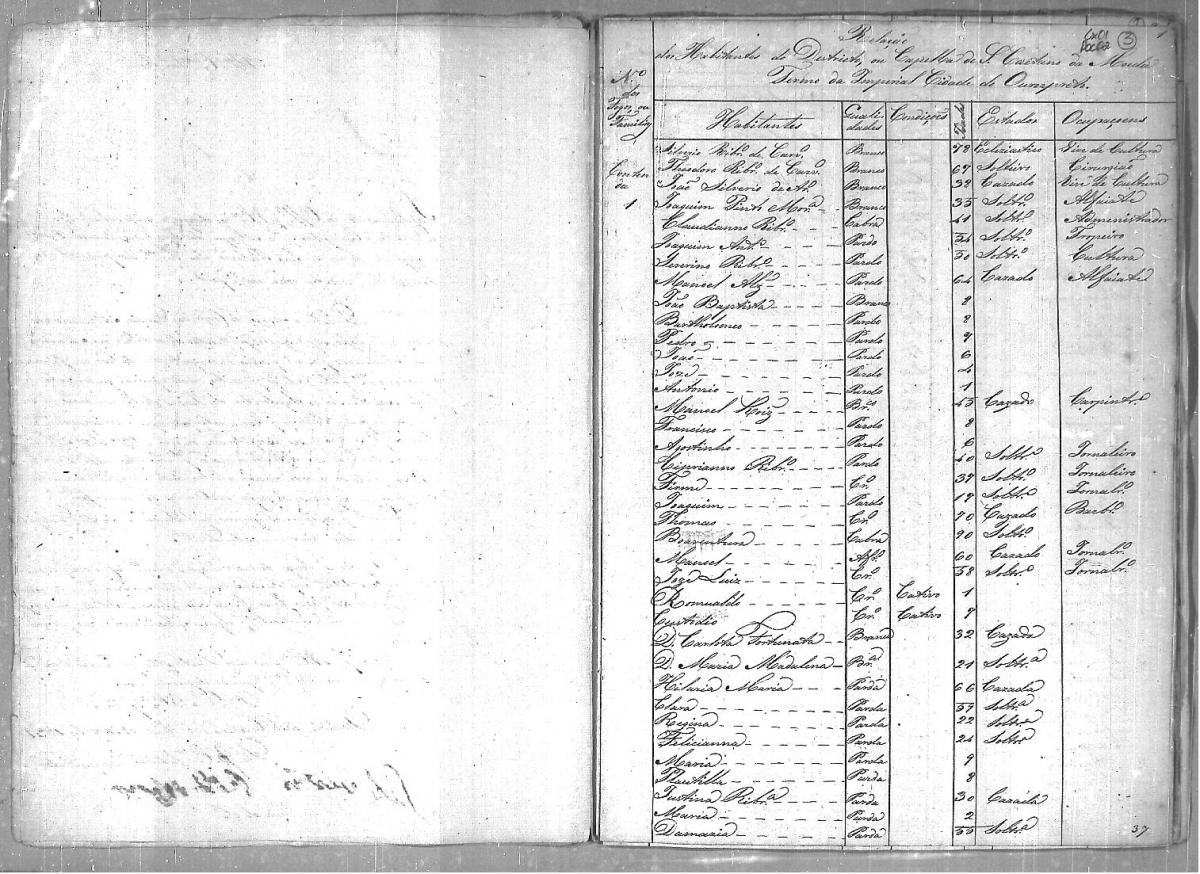 Relação
dos Habitantes do Districto, ou Capella de S. Caetano da Moeda
Termo da Imperial Cidade do Ouropreto.
Cx01
Doc02
3
N.º dos Fogos, ou Familias
Habitantes Qualidades Condiçoẽs Idade Estados Ocupaçoens
Silverio Ribr.º de Carv.º Branco 78 Ecleziastico Vive de Cultura
Theodoro Ribr.º de Carv.º Branco 67 Solteiro Cirurgiaõ
Joaõ Silverio de Branco 39 Cazado Vive de Cultura
1 Joaquim Pinto Mor.ª Branco 35 Soltr.º Alfaiate
Claudianno Ribr.º Cabra 41 Soltr.º Administrador
Joaquim Ant.º Pardo 54 Soltr.º Tropeiro
Severino Ribr.º Pardo 50 Soltr.º Cultura
Manoel Alz Pardo 64 Cazado Alfaiate
Joaõ Baptista Branco 8
Bartholomeo Pardo 8
Pedro Pardo 7
Joaõ Pardo 6
Joze Pardo 4
Antonio Pardo 1
Manoel Roiz Br.º 45 Cazado Carpintr.º
Francisco Pardo 8
Agostinho Pardo 6
Ciprianno Ribr.º Pardo 40 Soltr.º Jornaleiro
Firmo Cr.º 39 Soltr.º Jornaleiro
Joaquim Pardo 19 Soltr.º Jornalr.º
Thomas Cr.º 70 Cazado Barbr.º
Boaventura Cabra 90 Soltr.º
Manoel Afr.º 60 Cazado Jornalr.º
Joze Luiz Cr.º 58 Soltr.º Jornalr.º
Romualdo Cr.º Cativo 1
Custodio Cr.º Cativo 7
D. Carlota Fortunata Branca 32 Cazada
D. Maria Madalena Br.ª 21 Soltr.ª
Hilaria Maria Parda 66 Cazada
Clara Parda 59 Soltr.ª
Regina Parda 22 Soltr.ª
Felicianna Parda 24 Soltr.ª
Maria Parda 9
Plautilla Parda 8
Justina Ribr.ª Parda 30 Cazada
Maria Parda 2
Damazia Parda 55 Soltr.ª
37